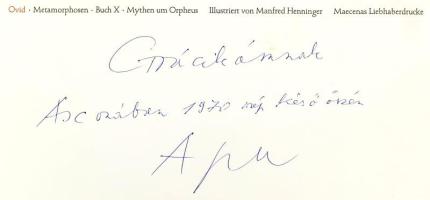 Ovid · Metamorphosen · Buch X · Mythen um Orpheus Illustriert von Manfred Henninger Maecenas Liebhaberdrucke
Grácikámnak
Asconában 1970 szép késő őszén
Apu